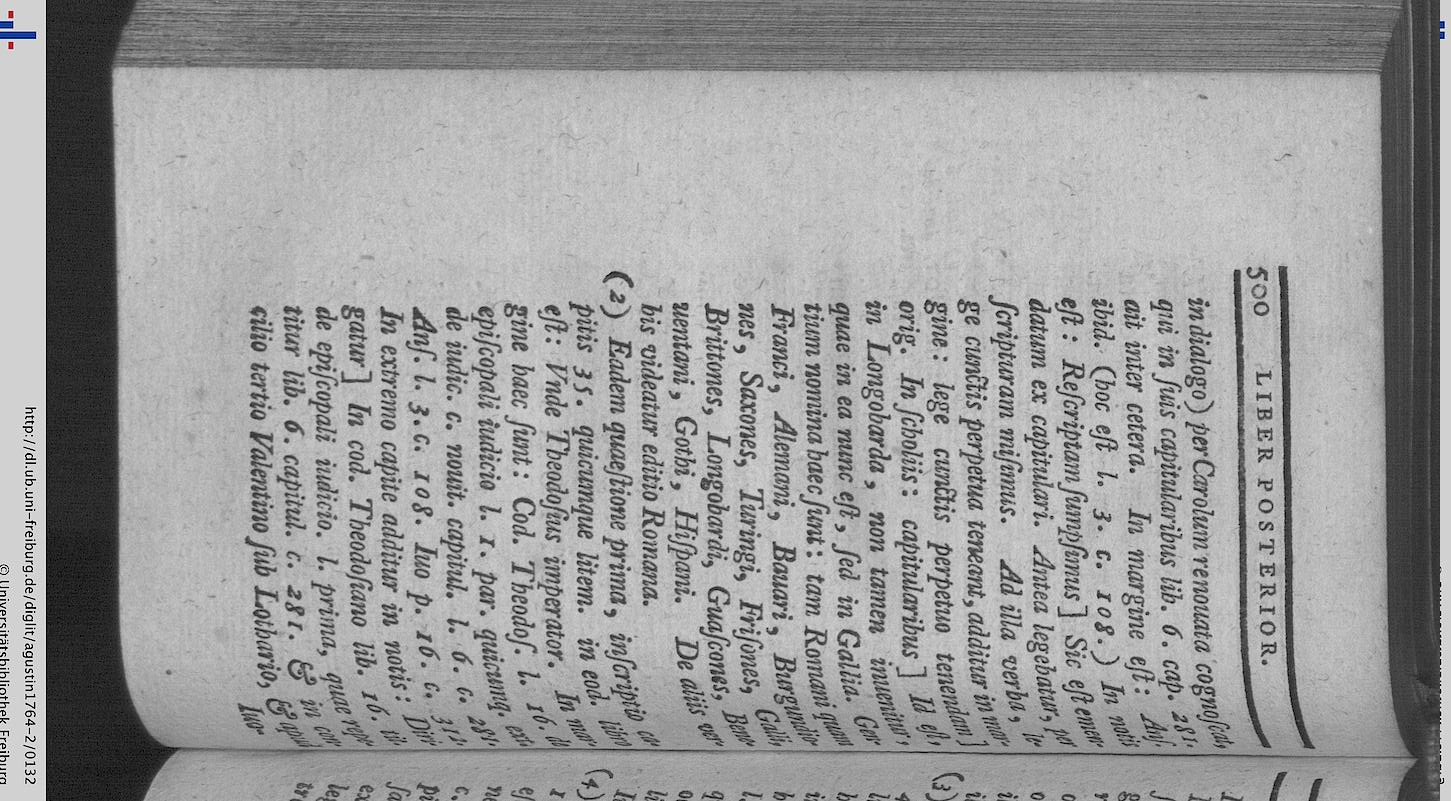 500 LIBER POSTERIOR.
in dialogo) per Carolum renouata cognoscat,
qui in ſuis capitularibus lib. 6. cap. 281.
ait inter cetera. In margine eſt: Anſ.
ibid. (hoc eſt l. 3. c. 108.) In notis
eſt: Reſcriptam ſumpſimus] Sic eſt emen-
datum ex capitulari. Antea legebatur,
ſcripturam miſimus. Ad illa verba,
ge cunctis perpetua teneant, additur in mar-
gine: lege cunctis perpetuo tenendam]
orig. In ſcholiis: capitularibus] Id eſt,
in Longobarda, non tamen inuenitur,
quae in ea nunc eſt, ſed in Gallia. Gen-
tium nomina haec ſunt: tam Romani quam
Franci, Alemani, Bauari, Burgundio-
nes, Saxones, Turingi, Friſones, Galli,
Brittones, Longobardi, Guaſcones, Bene-
uentani, Gothi, Hiſpani. De aliis ver-
bis videatur editio Romana.
(2) Eadem quaeſtione prima, inſcriptio ca-
pitis 35. quicumque litem. in eod. libro
eſt: Vnde Theodoſius imperator. In mar-
gine haec ſunt: Cod. Theodoſ. l. 16. de
epiſcopali iudicio l. 1. par. quicunq. ex.
de iudic. c. nouit. capitul. l. 6. c. 281.
Anſ. l. 3. c. 108. Iuo p. 16. c. 312.
In extremo capite additur in notis: Diri-
gatur] In cod. Theodoſiano lib. 16. ti.
de epiſcopali iudicio. l. prima, quae repe-
titur lib. 6. capitul. c. 281. & in con-
cilio tertio Valentino ſub Lothario, & apud
Iuo-
(3)
(4)
http://dl.ub.uni-freiburg.de/diglit/agustin1764-2/0132
© Universitätsbibliothek Freiburg